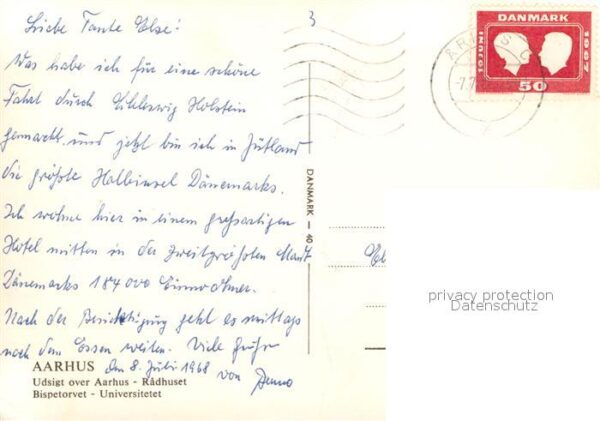 Liebe Tante Else!
3
Was habe ich für eine schöne
Fahrt durch Schleswig Holstein
gemacht und jetzt bin ich in Jütland
die größte Halbinsel Dänemarks.
Ich wohne hier in einem großartigen
Hotel mitten in der zweitgrößten Stadt
Dänemarks 184000 Einwohner.
Nach der Besichtigung geht es mittags
nach dem Essen weiter. Viele Grüße
den 8. Juli 1968 von
AARHUS
Udsigt over Aarhus - Rådhuset
Bispetorvet - Universitetet
DANMARK — 40
DANMARK
10 JUNI
1967
50
privacy protection
Datenschutz